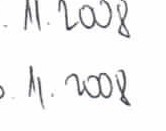 . 11. 2008
. 11. 2008